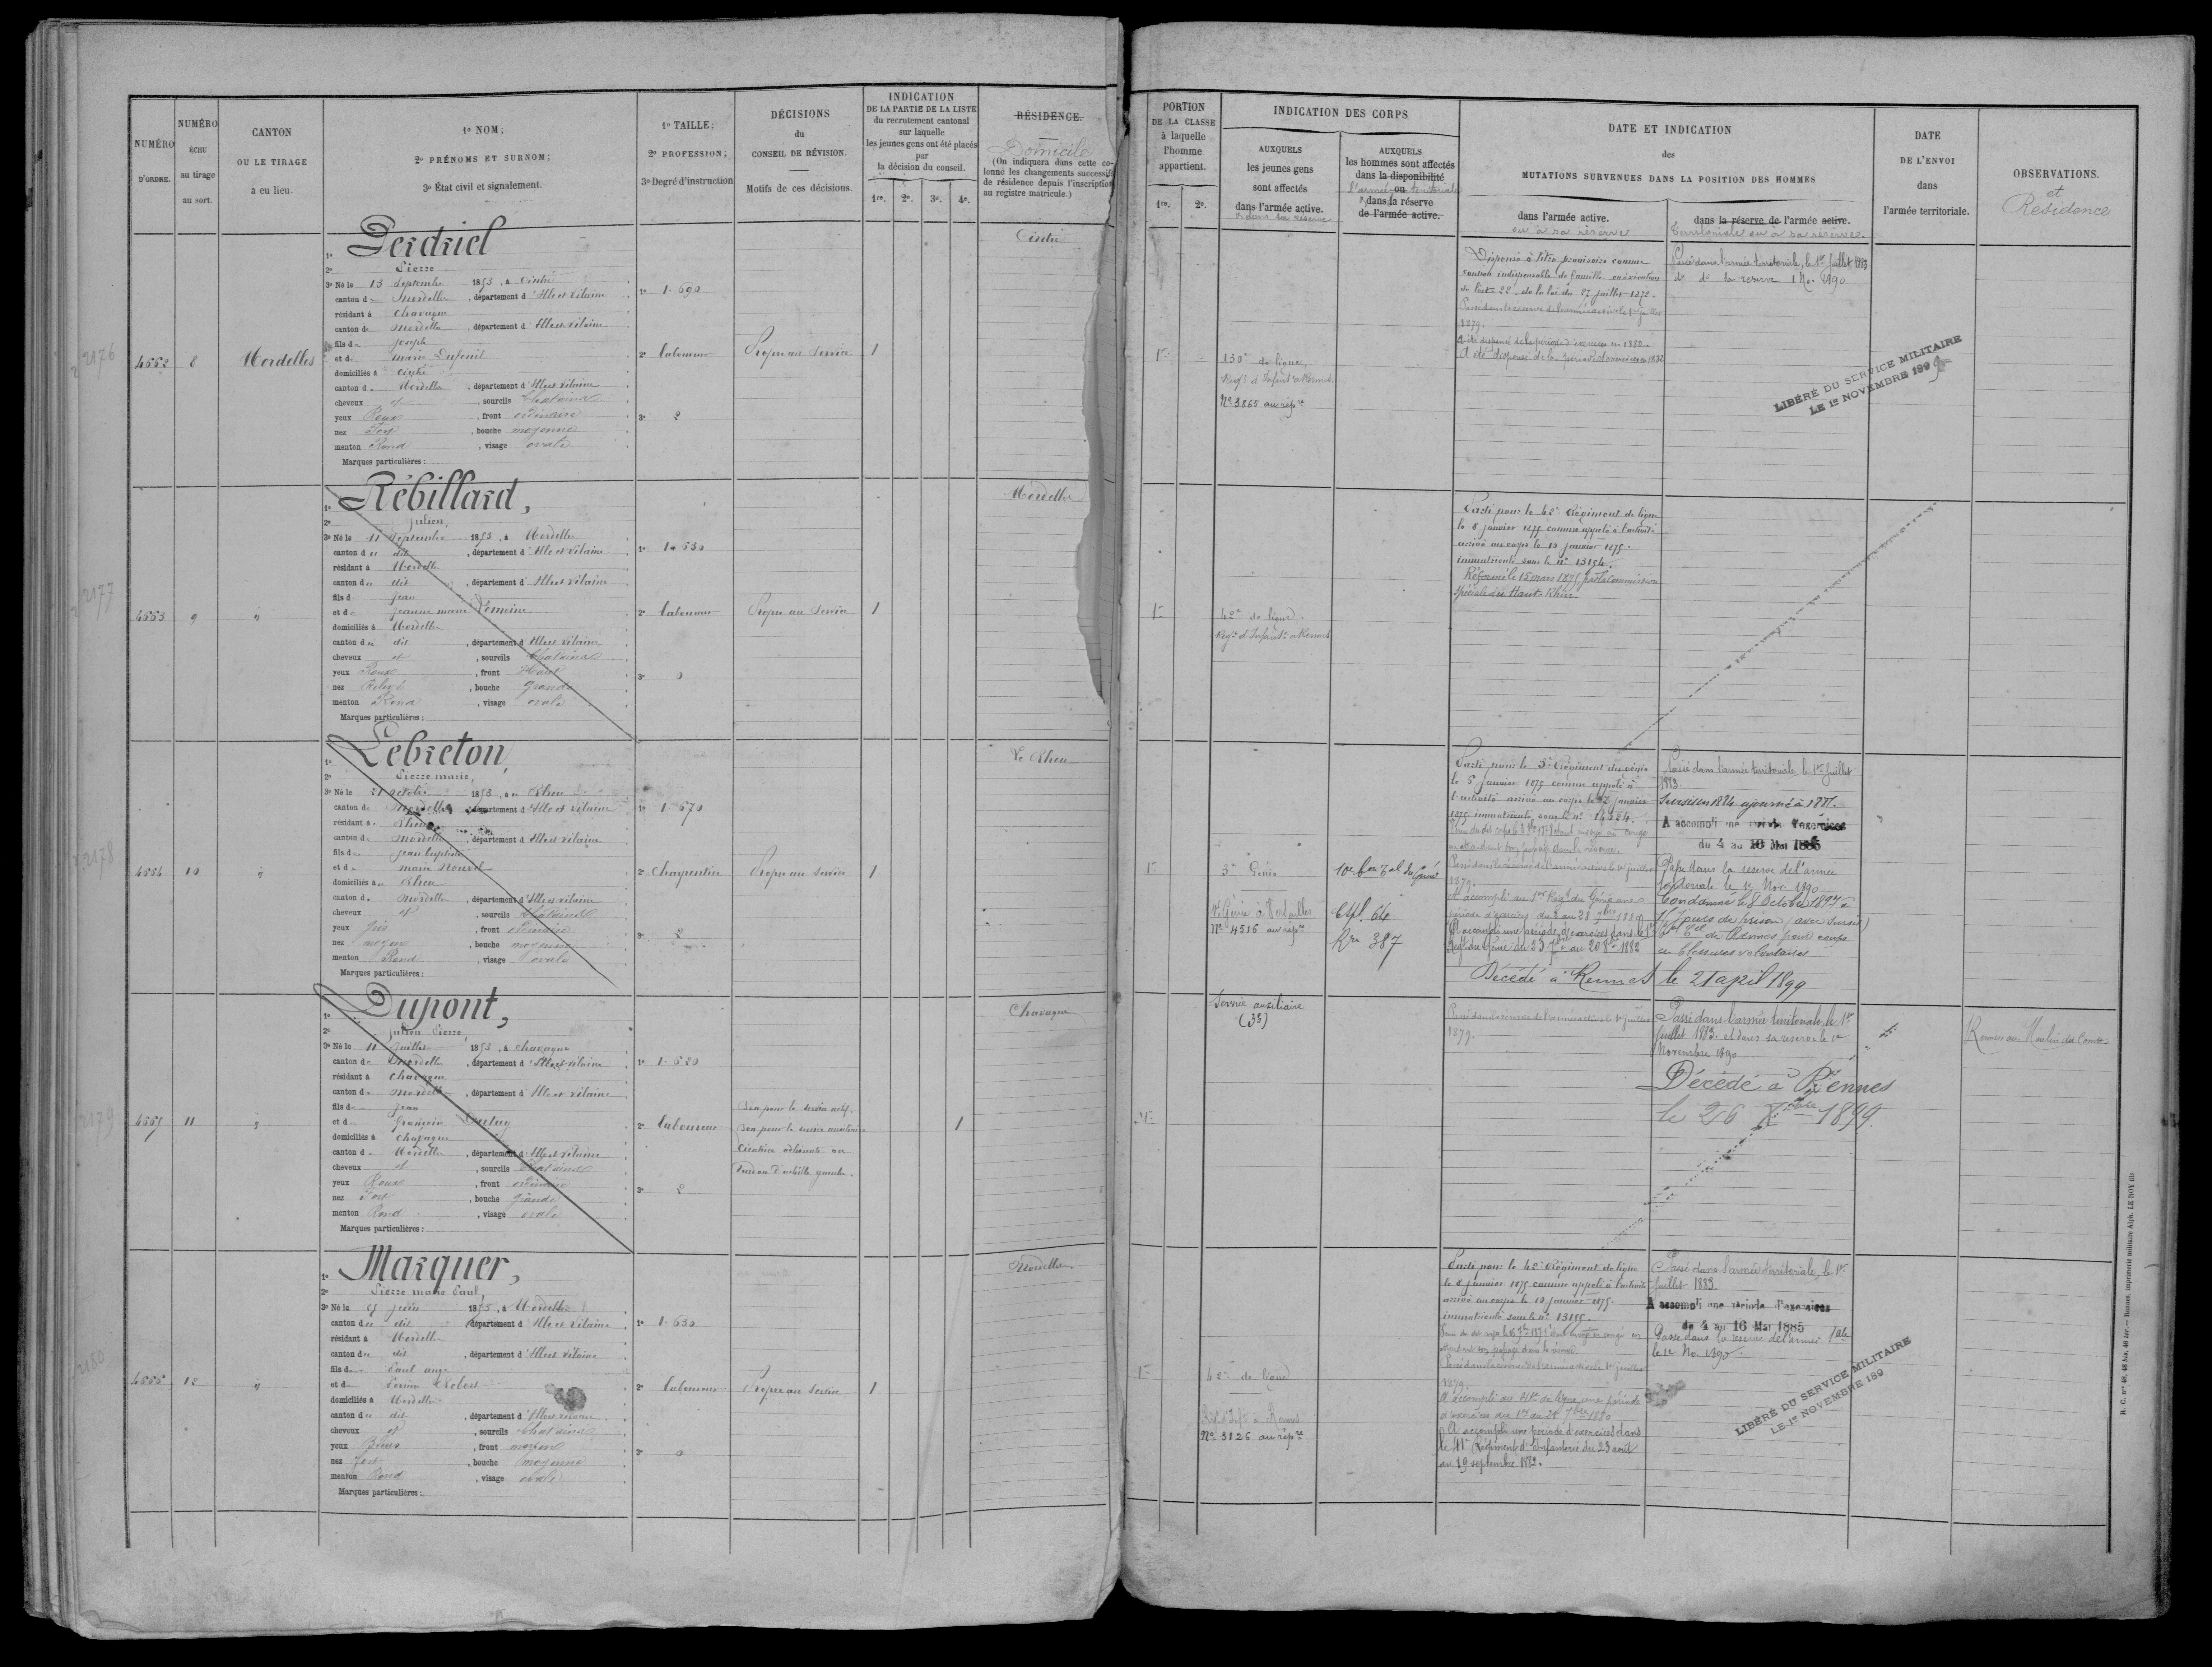 NUMÉRO D'ORDRE.
NUMÉRO ÉCHU au tirage au sort.
CANTON OU LE TIRAGE a eu lieu.
1º NOM;
2º PRÉNOMS ET SURNOM;
3º État civil et signalement.
1º TAILLE;
2º PROFESSION;
3º Degré d'instruction
DÉCISIONS
du
CONSEIL DE RÉVISION.
Motifs de ces décisions.
INDICATION
DE LA PARTIE DE LA LISTE
du recrutement cantonal
sur laquelle
les jeunes gens ont été placés
par
la décision du conseil.
1re. 2e. 3e. 4e.
RÉSIDENCE.
Domicile
(On indiquera dans cette co-
lonne les changements successifs
de résidence depuis l'inscription
au registre matricule.)
PORTION
DE LA CLASSE
à laquelle
l'homme
appartient.
1re. 2e.
INDICATION DES CORPS
AUXQUELS
les jeunes gens
sont affectés
dans l'armée active.
AUXQUELS
les hommes sont affectés
dans la disponibilité
ou
l'armée territoriale
dans la réserve
de l'armée active.
DATE ET INDICATION
des
MUTATIONS SURVENUES DANS LA POSITION DES HOMMES
dans l'armée active.
ou à sa réserve
dans la réserve de l'armée active.
Territoriale ou à sa réserve.
DATE
DE L'ENVOI
dans
l'armée territoriale.
OBSERVATIONS.
et
Résidence
2176
4552 8 Mordelles
1º Perdriel
2º Pierre
3º Né le 13 Septembre 1853, à Cintré
canton de Mordelles, département d'Ille et Vilaine
résidant à Chavagne
canton de Mordelles, département d'Ille et Vilaine
fils de Joseph
et de Marie
domiciliés à Cintré
canton de Mordelles, département d'Ille et Vilaine
cheveux et, sourcils Chatains
yeux Roux, front ordinaire
nez Fort, bouche moyenne
menton Rond, visage ovale
Marques particulières:
1º 1.690
2º laboureur
3º 2
Propre au Service 1
Cintré
1re
130e de ligne
Regt d'Infant. à Rennes
Nº 3865 au répre
Dispensé à titre provisoire comme
soutien indispensable de famille en exécution
de l'art. 22 de la loi du 27 juillet 1872.
Passé dans la réserve de l'armée active le 1er juillet
1879.
A été dispensé de la période d'exercices en 1880.
A été dispensé de la période d'exercices en 1882
Passé dans l'armée territoriale, le 1er Juillet 1883
do do la reserve 1 No. 1890
LIBÉRÉ DU SERVICE MILITAIRE
LE 1er NOVEMBRE 189
2177
4553 9 "
1º Rébillard,
2º Julien,
3º Né le 11 Septembre 1853, à Mordelles
canton du dit, département d'Ille et Vilaine
résidant à Mordelles
canton du dit, département d'Ille et Vilaine
fils de Jean
et de Jeanne marie Lemoine
domiciliés à Mordelles
canton du dit, département d'Ille et Vilaine
cheveux et, sourcils Chatains
yeux Roux, front Haut
nez Relevé, bouche Grande
menton Rond, visage ovale
Marques particulières:
1º 1.630
2º laboureur
3º 0
Propre au Service 1
Mordelles
1re
42e de ligne
Regt d'Infant. à Rennes
Parti pour le 42e Régiment de ligne
le 8 janvier 1875 comme appelé à l'activité
arrivé au corps le 12 janvier 1875.
immatriculé sous le nº 13154.
Réformé le 15 mars 1875 par la Commission
spéciale du Haut-Rhin.
2178
4554 10 "
1º Lebreton,
2º Pierre marie,
3º Né le 21 octobre 1853, au Rheu
canton de Mordelles, département d'Ille et Vilaine
résidant au Rheu
canton de Mordelles, département d'Ille et Vilaine
fils de Jean baptiste
et de marie Nouvel
domiciliés au Rheu
canton de Mordelles, département d'Ille et Vilaine
cheveux et, sourcils Chatains
yeux Gris, front ordinaire
nez moyen, bouche moyenne
menton Rond, visage ovale
Marques particulières:
1º 1.670
2º Charpentier
3º 2
Propre au Service 1
Le Rheu
1re
3e Génie
Génie à Versailles
Nº 4516 au répre
10e bon Tal du Génie
Rre 387
Parti pour le 3e Régiment du génie
le 6 janvier 1875 comme appelé à
l'activité arrivé au corps le 12 janvier
1875 immatriculé sous le nº
en attendant son passage dans la réserve.
Passé dans la réserve de l'armée active le 1er juillet
1879.
A accompli au 1er Regt du Génie une
période d'exercices du 1 au 28 7bre 1880
A accompli une période d'exercices dans le 1er
Regt du Génie du 23 7bre au 20 8bre 1882
Passé dans l'armée territoriale, le 1er Juillet
1883.
Sursis en 1884 ajourné à 1885.
A accompli une période d'exercices
du 4 au 16 Mai 1885
Passé dans la reserve de l'armée
territoriale le 1er Nov. 1890
Condamné le 8 Octobre 1897 à
Jours de prison (avec sursis)
de Rennes pour coups
et blessures volontaires
Décédé à Rennes le 21 april 1899
2179
4555 11 "
1º Dupont,
2º Julien Pierre
3º Né le 11 Juillet 1853, à Chavagne
canton de Mordelles, département d'Ille et Vilaine
résidant à Chavagne
canton de Mordelles, département d'Ille et Vilaine
fils de Jean
et de Françoise
domiciliés à Chavagne
canton de Mordelles, département d'Ille et Vilaine
cheveux et, sourcils Chatains
yeux Roux, front ordinaire
nez Fort, bouche grande
menton Rond, visage ovale
Marques particulières:
1º 1.620
2º laboureur
3º 2
Bon pour le service actif.
Bon pour le service auxiliaire
Cicatrice adhérente au
tendon d'achille gauche.
1
Chavagne
Service auxiliaire
(35)
Passé dans la réserve de l'armée active le 1er juillet
1879.
Passé dans l'armée territoriale, le 1er
Juillet 1883. et dans sa reserve le 1er
Novembre 1890
Décédé à Rennes
le 26 Xbre 1899.
Rennes au Moulin du Comte
2180
4556 12 "
1º Marquer,
2º Pierre marie Paul,
3º Né le juin 1853, à Mordelles
canton du dit, département d'Ille et Vilaine
résidant à Mordelles
canton du dit, département d'Ille et Vilaine
fils de Paul ange
et de Perrine Robert
domiciliés à Mordelles
canton du dit, département d'Ille et Vilaine
cheveux et, sourcils Chatains
yeux Bleus, front moyen
nez fort, bouche moyenne
menton Rond, visage ovale
Marques particulières:
1º 1.630
2º laboureur
3º 0
Propre au Service 1
Mordelles
1re
42e de ligne
Regt d'Infie à Rennes
Nº 3126 au répre
Parti pour le 42e Régiment de ligne
le 8 janvier 1875 comme appelé à l'activité
arrivé au corps le 12 janvier 1875.
immatriculé sous le nº
attendant son passage dans la réserve
Passé dans la réserve de l'armée active le 1er juillet
1879.
A accompli au 41e de ligne, une période
d'exercices du 1er au 28 7bre 1880.
A accompli une période d'exercices dans
le 41e Régiment d'Infanterie du 23 août
au 19 septembre 1882.
Passé dans l'armée territoriale, le 1er
Juillet 1883.
A accompli une période d'exercices
du 4 au 16 Mai 1885
Passé dans la reserve de l'armée Tale
le 1er No. 1890
LIBÉRÉ DU SERVICE MILITAIRE
LE 1er NOVEMBRE 189
Rennes, imprimerie militaire Alph. LE ROY fils.